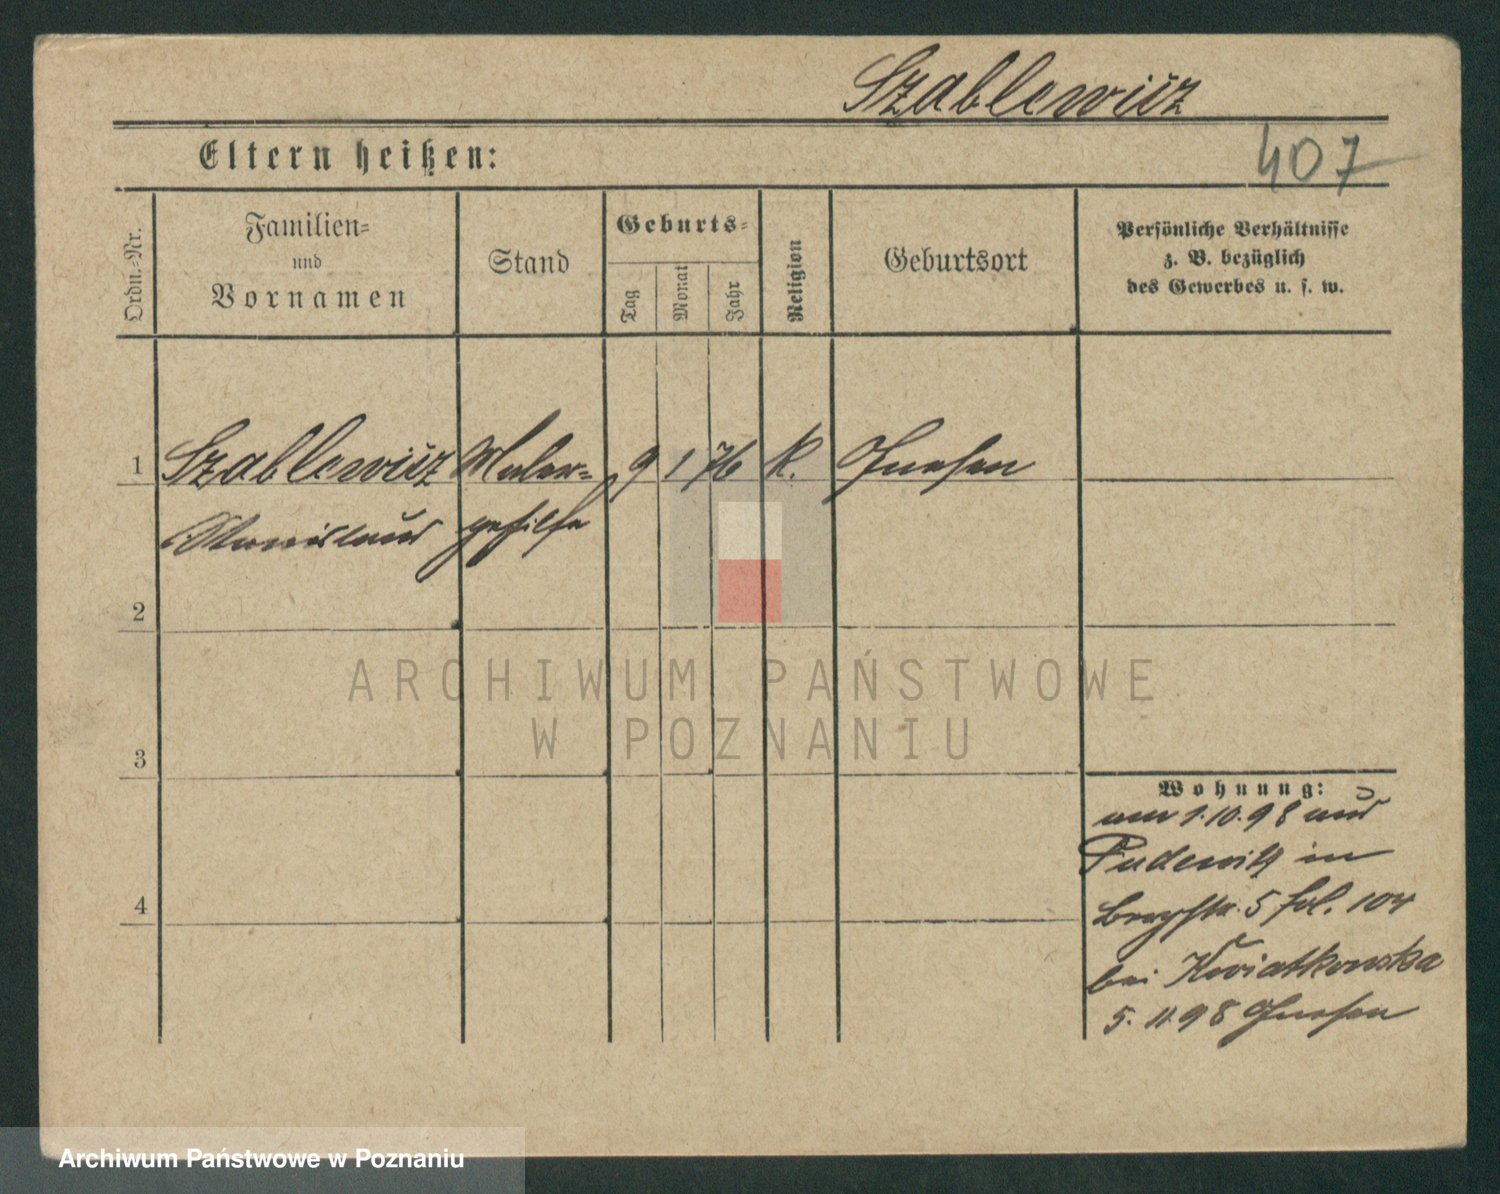 Szablewicz
407
Eltern heißen:
Ordn.-Nr.
Familien-
und
Vornamen
Stand
Geburts-
Tag
Monat
Jahr
Religion
Geburtsort
Persönliche Verhältnisse
z. B. bezüglich
des Gewerbes u. s. w.
1 Szablewicz Maler- 9 1 76 k. Gnesen
Stanislaus gehilfe
2
3
4
Wohnung:
am 1.10.98 aus
Pudewitz in
5 fol. 104
bei Kwiatkowska
5. 11 98 Gnesen
ARCHIWUM PAŃSTWOWE
W POZNANIU
Archiwum Państwowe w Poznaniu